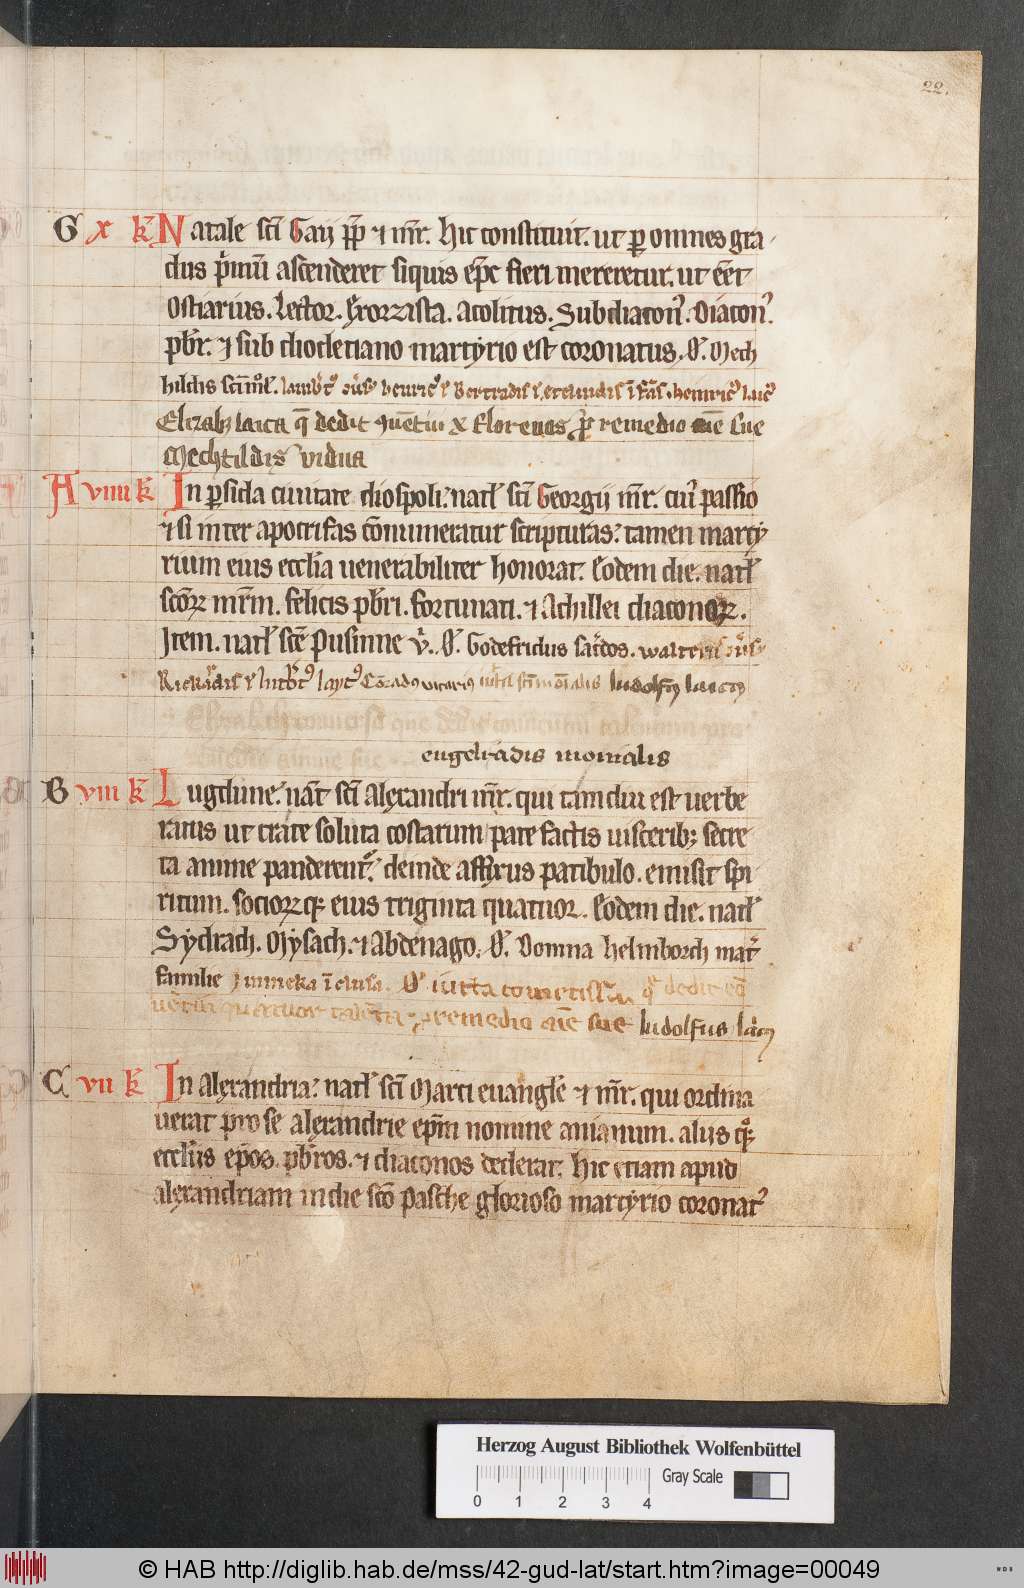 22.
G x kł Natale sc̄i Gaij pp̄ ⁊ mr̄. hic constituit. ut ꝑ omnes gra
dus p̍mū ascenderet siquis ep̄c fieri mereretur. ut eēt
Ostiarius. Lector. Exorzista. Acolitus. Subdiacon᷒. Diacon᷒.
pb̄r. ⁊ sub diocletiano martyrio est coronatus. O᷒. Mech
hildis
Elizab; laica q̄ dedit x florenos ꝓ remedio aīe sue
Mechtildis vidua
A viiii kł In ꝑsida ciuitate diospoli. natł sc̄i Georgij mr̄. cui᷒ passio
⁊ si inter apocrifas cōnumeratur scripturas. tamen marty
rium eius eccłia uenerabiliter honorat. Eodem die. natł
sc̄oꝝ mr̄m. felicis pb̄ri. fortunati. ⁊ Achillei diaconoꝝ.
Item. natł sc̄e Pusinne v̍. O᷒. Godefridus sac̍dos. walterus
ludolf᷒ laicus
engelradis monialis
B viii kł Lugdune. nat̄ sc̄i Alexandri mr̄. qui tam diu est uerbe
ratus ut crate soluta costarum pate factis uisceribꝫ secre
ta anime panderent᷒. deinde affixus patibulo. emisit spi
ritum. socioꝝqꝫ eius triginta quatuor. Eodem die. natł
Sydrach. Mysach. ⁊ Abdenago. O᷒. Domna helmborch mat̍
familie O᷒ iutta cometissa q̍ dedit
quatuor talēta ꝓ remedio aīe sue ludolfus
C vii kł In Alexandria. natł sc̄i Marci euangłe ⁊ mr̄. qui ordina
uerat pro se alexandrie ep̄m nomine anianum. alijs qꝫ
eccłiis ep̄os. pb̄ros. ⁊ diaconos dederat. hic etiam apud
alexandriam in die sc̄o pasche glorioso martyrio coronat᷒
Herzog August Bibliothek Wolfenbüttel
Gray Scale
0 1 2 3 4
© HAB http://diglib.hab.de/mss/42-gud-lat/start.htm?image=00049